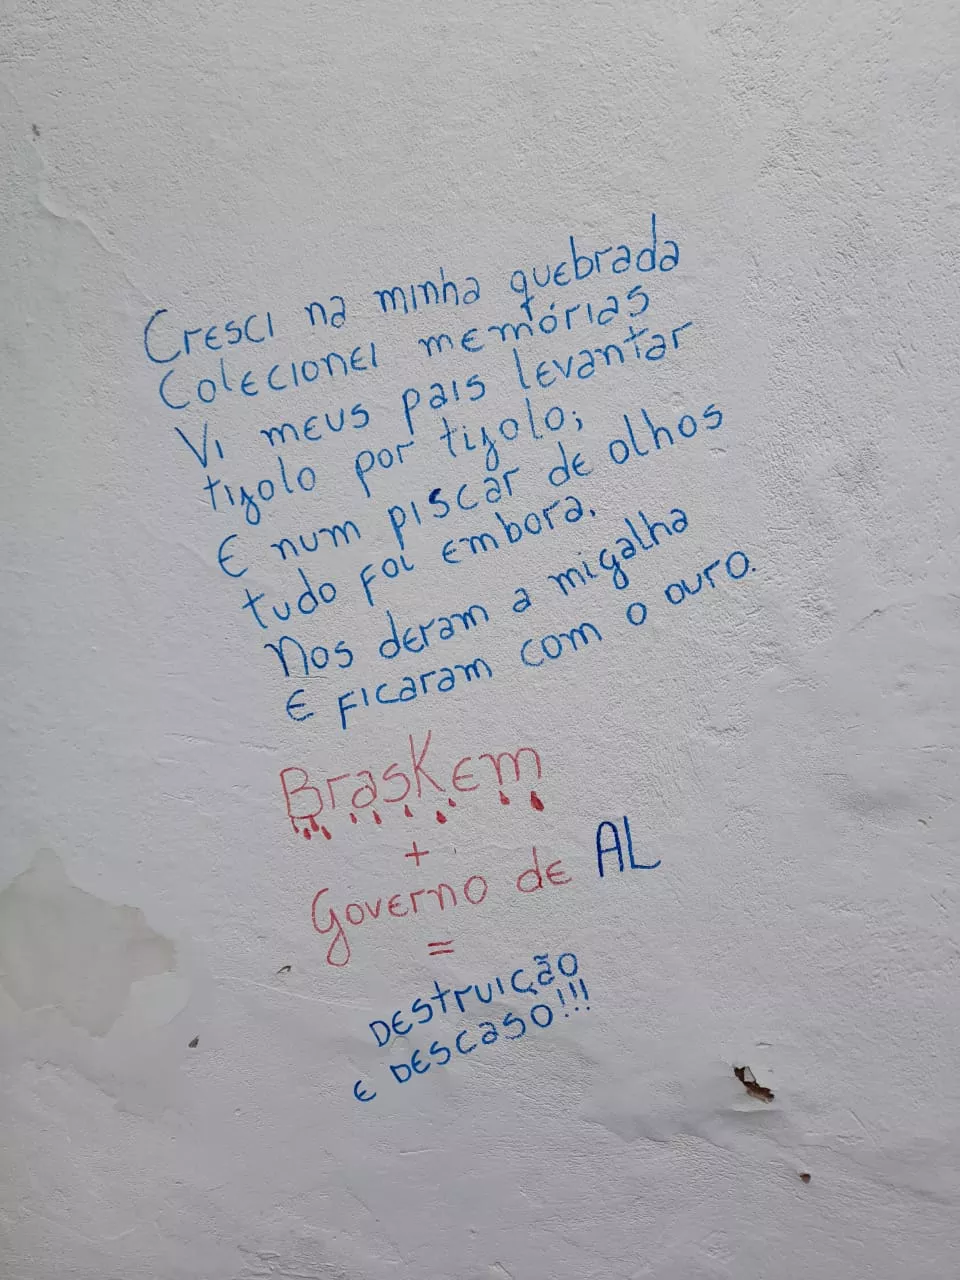 Cresci na minha quebrada
Colecionei memórias
Vi meus pais levantar
tijolo por tijolo;
E num piscar de olhos
tudo foi embora.
Nos deram a migalha
E ficaram com o ouro.
BrasKem
+
Governo de AL
=
DESTRUIÇÃO
E DESCASO!!!